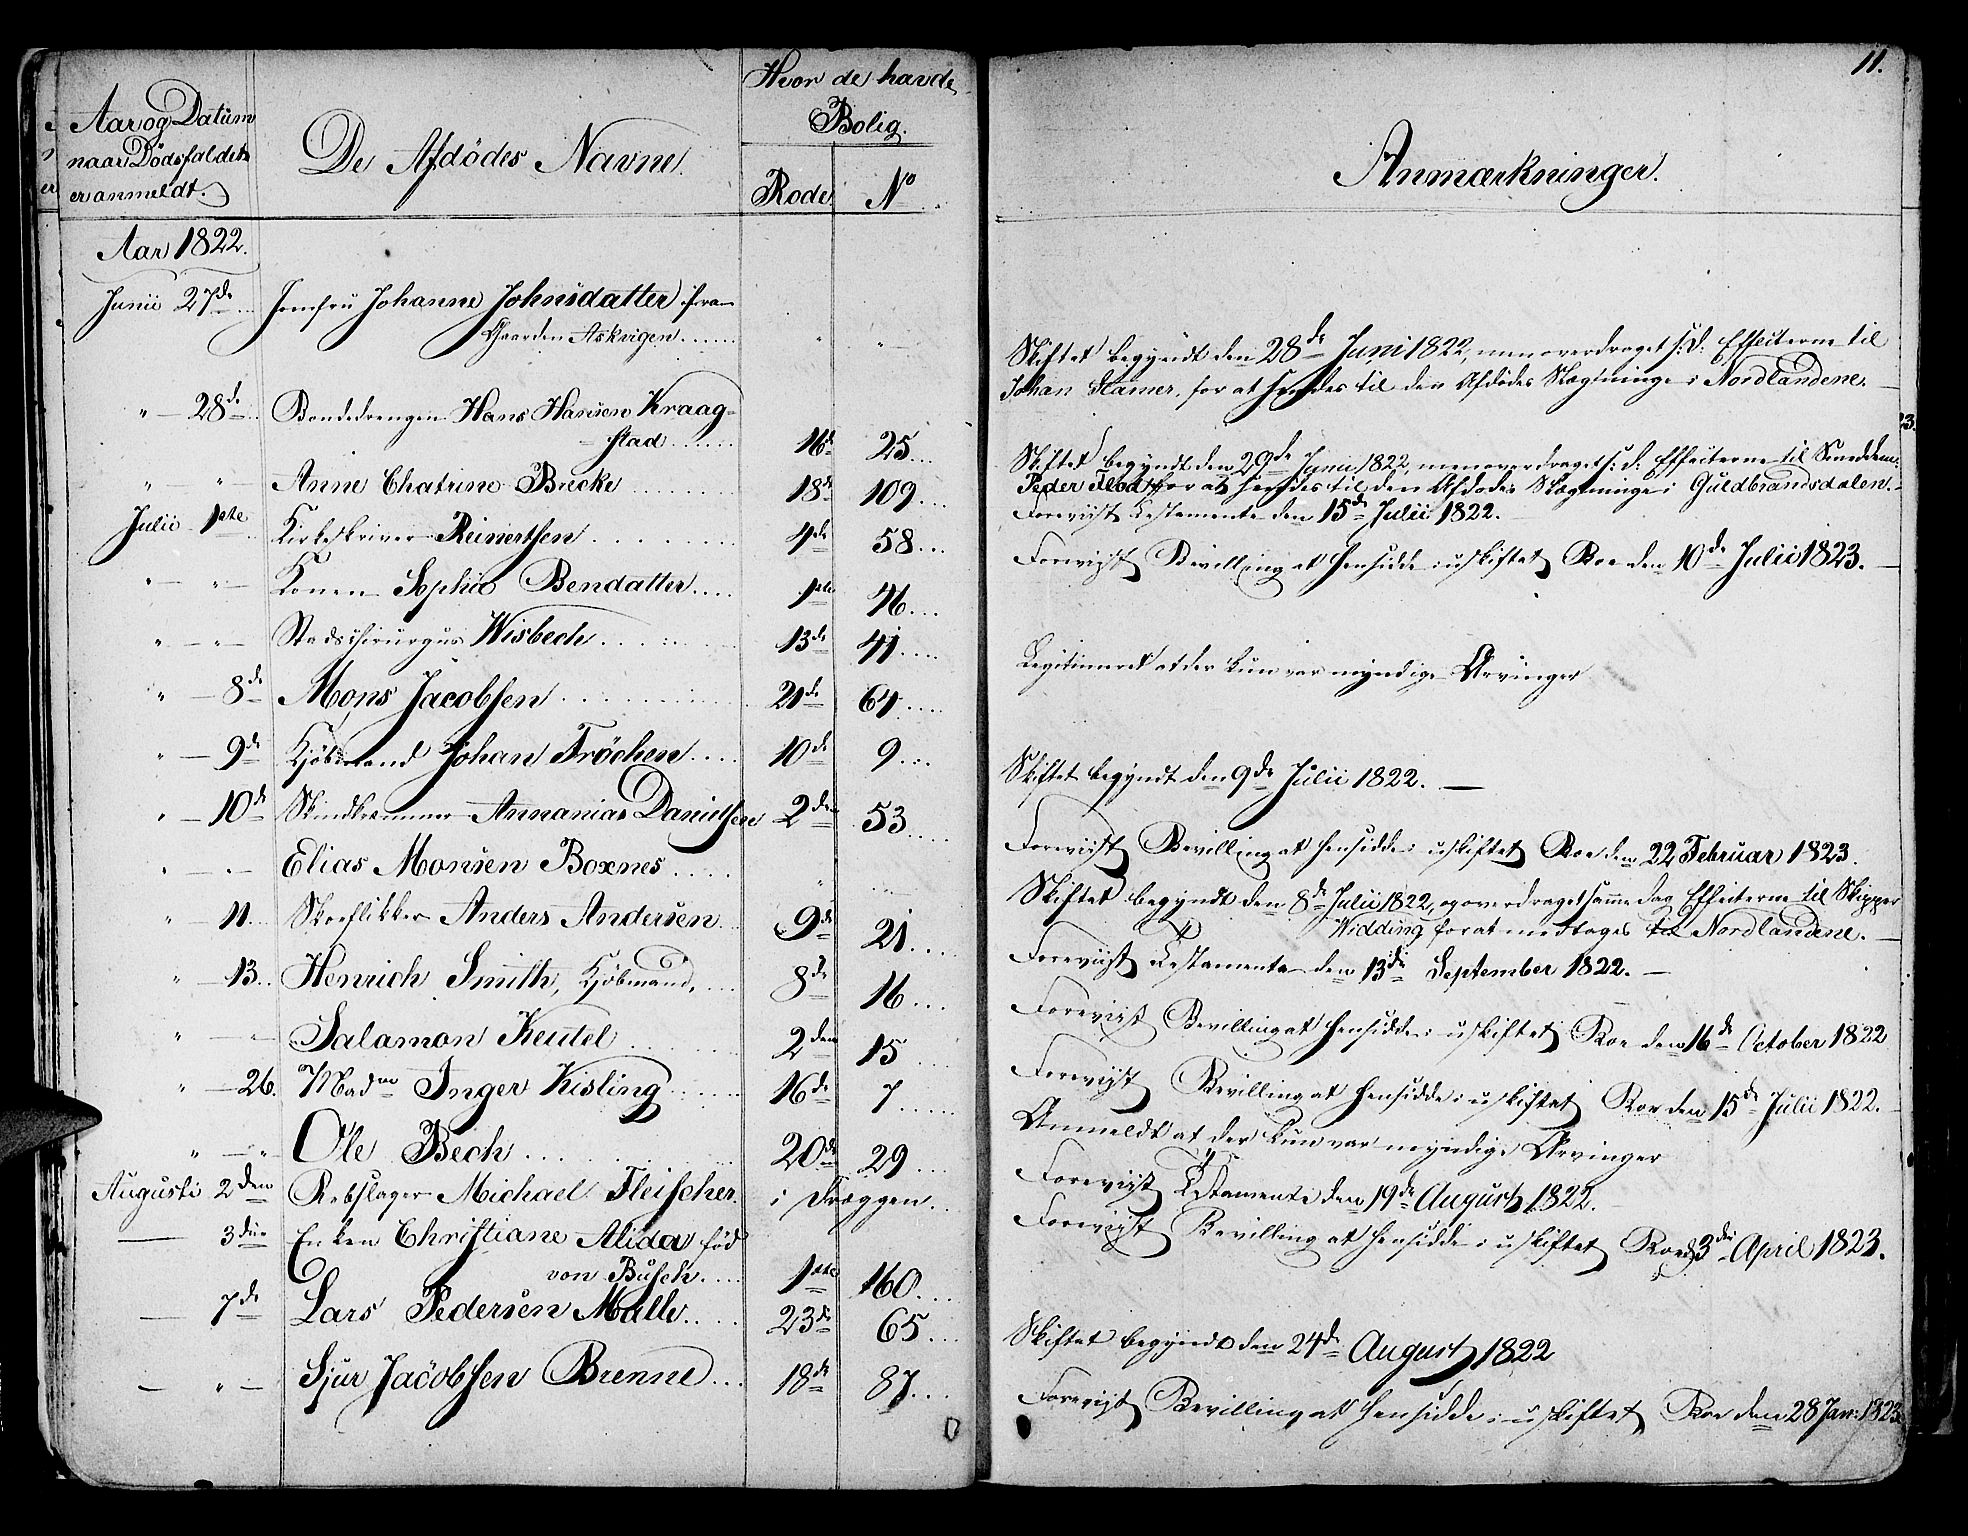 Aar og Datum
naar Dødsfaldet
er anmeldt.
De Afdødes Navne.
Hvor de havde
Bolig.
Rode No
Aar 1822.
Junii 27de Jomfru Johanne Johnsdatter fra
Gaarden Askvigen
" 28de Bondedrengen Hans Hansen Kraag-
stad 16de 25
" " Anne Chatrine Brecke 18de 109
Julii 1ste Kirkeskriver Reinertsen 4de 58
" " Konen Sophia Bendatter 1ste 46
" " Stadschirurgus Wisbech 13de 41
" 8de Mons Jacobsen 21de 64
" 9de Kjøbmand Johan Tröchen 10de 9
" 10de Skindkræmmer Annanias Danielsen 2den 53
" " Elias Monsen Boxnes
" 11 Skoeflikker Anders Andersen 9de 21
" 13 Henrich Smith, Kjøbmand, 8de 16
" " Salamon Keutel 2den 15
" 26. Madme Inger Kisling 16de 7
" " Ole Bech 20de 29
Augusti 2den Rebslager Michael Fleischer. i Dræggen
3die Enken Christiane Alida fød
von Busch 1ste 160
7de Lars Pedersen Malle 23de 65
" Sjur Jacobsen Brenne 18de 87
11.
Anmærkninger.
Skiftet begyndt den 28de Juni 1822, men overdraget s: d: Effecterne til
Johan Hamer, for at sendes til den Afdødes Slægtninge i Nordlandene.
Skiftet begyndt den 29de Junii 1822, men overdraget s: d: Effecterne til
Peder for at sendes til den Afdødes Slægtninge i Guldbrandsdalen.
Foreviist Testamente den 15de Julii 1822.
Foreviist Bevilling at hensidde i uskiftet Boe den 10de Julii 1823.
Legitimeret at der kun var myndige Arvinger
Skiftet begyndt den 9de Julii 1822.
Foreviist Bevilling at hensidde i uskiftet Boe den 22 Februar 1823.
Skiftet begyndt den 8de Julii 1822, og overdraget samme dag Effecterne til Skipper
Widding for at medtages til Nordlandene.
Foreviist Testamente den 13de September 1822.
Foreviist Bevilling at hensidde i uskiftet Boe den 16de October 1822
Foreviist Bevilling at hensidde i uskiftet Boe den 15de Julii 1822.
Anmeldt at der kun var myndige Arvinger
Foreviist Testamente den 19de August 1822.
Foreviist Bevilling at hensidde i uskiftet Boe d 3die April 1823.
Skiftet begyndt den 24de August 1822
Foreviist Bevilling at hensidde i uskiftet Boe den 28 Jan: 1823